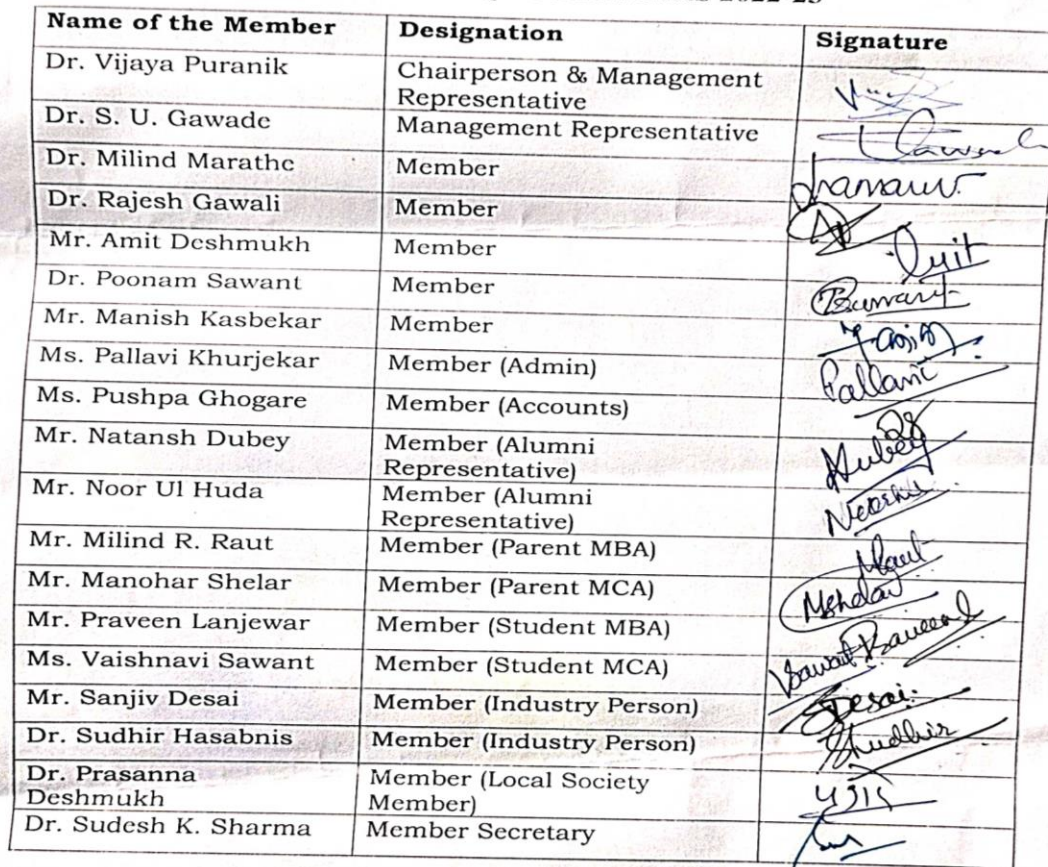 2022-23
Name of the Member Designation Signature
Dr. Vijaya Puranik Chairperson & Management
Representative
Dr. S. U. Gawade Management Representative
Dr. Milind Marathe Member
Dr. Rajesh Gawali Member
Mr. Amit Deshmukh Member Amit
Dr. Poonam Sawant Member PSawant
Mr. Manish Kasbekar Member
Ms. Pallavi Khurjekar Member (Admin) Pallavi
Ms. Pushpa Ghogare Member (Accounts)
Mr. Natansh Dubey Member (Alumni Dubey
Representative)
Mr. Noor Ul Huda Member (Alumni
Representative)
Mr. Milind R. Raut Member (Parent MBA) MRaut
Mr. Manohar Shelar Member (Parent MCA) MShelar
Mr. Praveen Lanjewar Member (Student MBA) Praveen L
Ms. Vaishnavi Sawant Member (Student MCA) VSawant
Mr. Sanjiv Desai Member (Industry Person) SDesai
Dr. Sudhir Hasabnis Member (Industry Person) Sudhir
Dr. Prasanna Member (Local Society
Deshmukh Member)
Dr. Sudesh K. Sharma Member Secretary